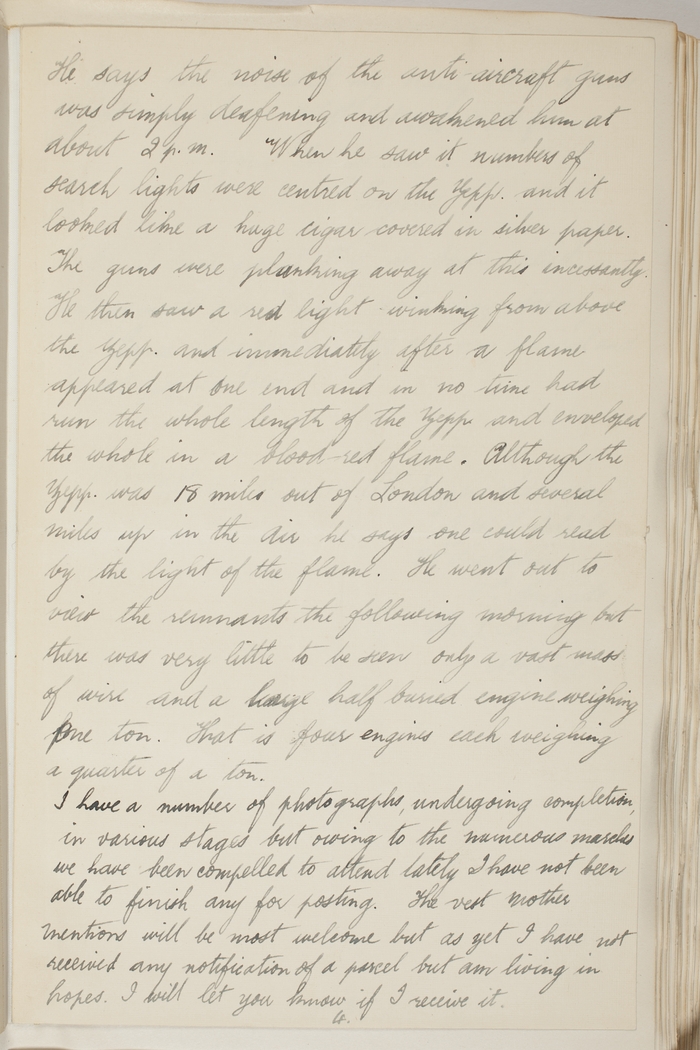 He says the noise of the anti-aircraft guns
was simply deafening and awakened him at
about 2 p.m. When he saw it numbers of
search lights were centred on the Zepp. and it
looked like a huge cigar covered in silver paper.
The guns were plunking away at this incessantly.
He then saw a red light winking from above
the Zepp. and immediately after a flame
appeared at one end and in no time had
run the whole length of the Zepp and enveloped
the whole in a blood-red flame. Although the
Zepp. was 18 miles out of London and several
miles up in the air he says one could read
by the light of the flame. He went out to
view the remnants the following morning but
there was very little to be seen only a vast mass
of wire and a large half buried engine weighing
one ton. That is four engines each weighing
a quarter of a ton.
I have a number of photographs, undergoing completion,
in various stages but owing to the numerous marches
we have been compelled to attend lately I have not been
able to finish any for posting. The vest Mother
mentions will be most welcome but as yet I have not
received any notification of a parcel but am living in
hopes. I will let you know if I receive it.